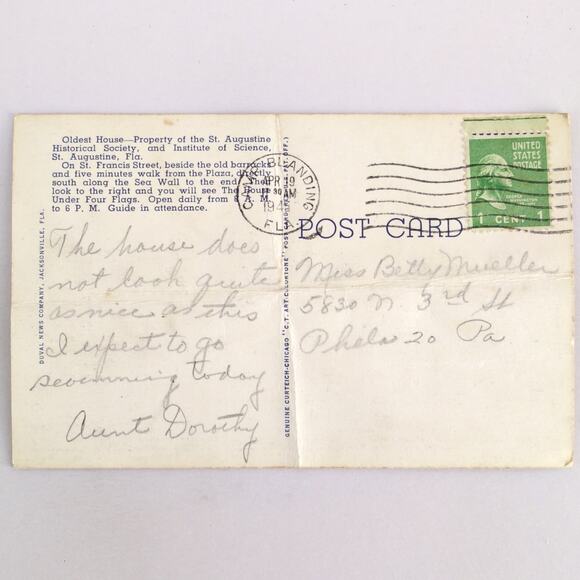 Oldest House—Property of the St. Augustine
Historical Society, and Institute of Science,
St. Augustine, Fla.
On St. Francis Street, beside the old barracks
and five minutes walk from the Plaza, directly
south along the Sea Wall to the end. Then
look to the right and you will see The House
Under Four Flags. Open daily from 8 A. M.
to 6 P. M. Guide in attendance.
The house does
not look quite
as nice as this
I expect to go
swimming today
Aunt Dorothy
DUVAL NEWS COMPANY, JACKSONVILLE, FLA.
GENUINE CURTEICH-CHICAGO "C. T. ART-COLORTONE" POST CARD
CAMP BLANDING
APR 19
AM
FLA
POST CARD
UNITED
STATES
POSTAGE
GEORGE
WASHINGTON
1 CENT 1
Miss Betty Mueller
5830 N. 3rd St
Phila 20 Pa